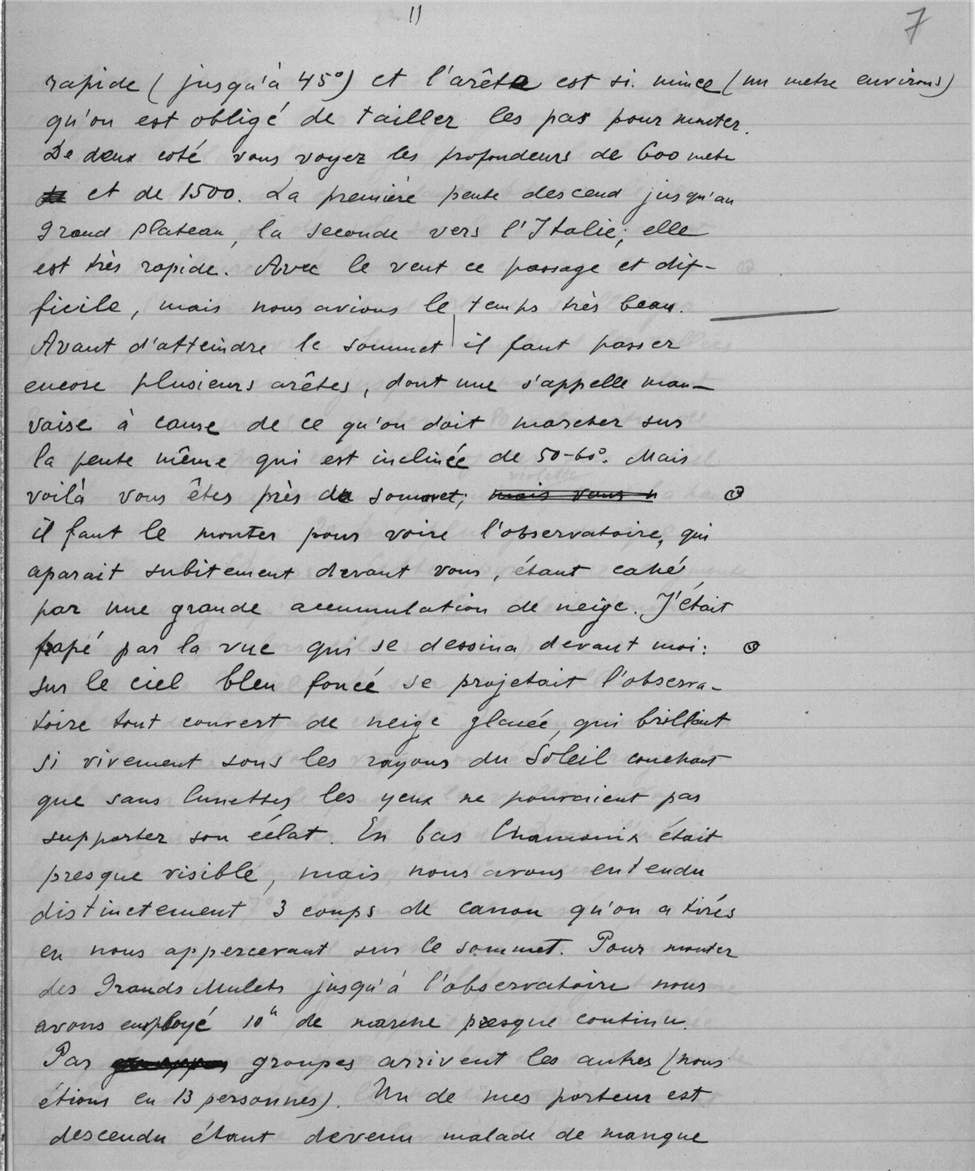 11
7
rapide (jusqu'à 45°) et l'arête est si mince (un metre environs)
qu'on est obligé de tailler les pas pour monter.
De deux coté vous voyez les profondeurs de 600 metr
et de 1500. La première pente descend jusqu'au
Grand Plateau, la seconde vers l'Italie; elle
est très rapide. Avec le vent ce passage et dif-
ficile, mais nous avions le temps très beau.
Avant d'atteindre le sommet il faut passer
encore plusieurs arêtes, dont une s'appelle mau-
vaise à cause de ce qu'on doit marcher sur
la pente même qui est inclinée de 50-60°. Mais
voilà vous êtes près du sommet; mais vous
il faut le monter pour voire l'observatoire, qui
aparait subitement devant vous, étant caché
par une grande accumulation de neige. J'était
frapé par la vue qui se dessina devant moi:
sur le ciel bleu foncé se projetait l'observa-
toire tout couvert de neige glacée, qui brillait
si vivement sous les rayons du Soleil couchant
que sans lunettes les yeux ne pouvaient pas
supporter son éclat. En bas Chamonix était
presque visible, mais nous avons entendu
distinctement 3 coups de canon qu'on a tirés
en nous appercevant sur le sommet. Pour monter
des Grands Mulets jusqu'à l'observatoire nous
avons employé 10h de marche presque continu
Par groupes arrivent les autres (nous
étions en 13 personnes). Un de mes porteur est
descendu étant devenu malade de manque